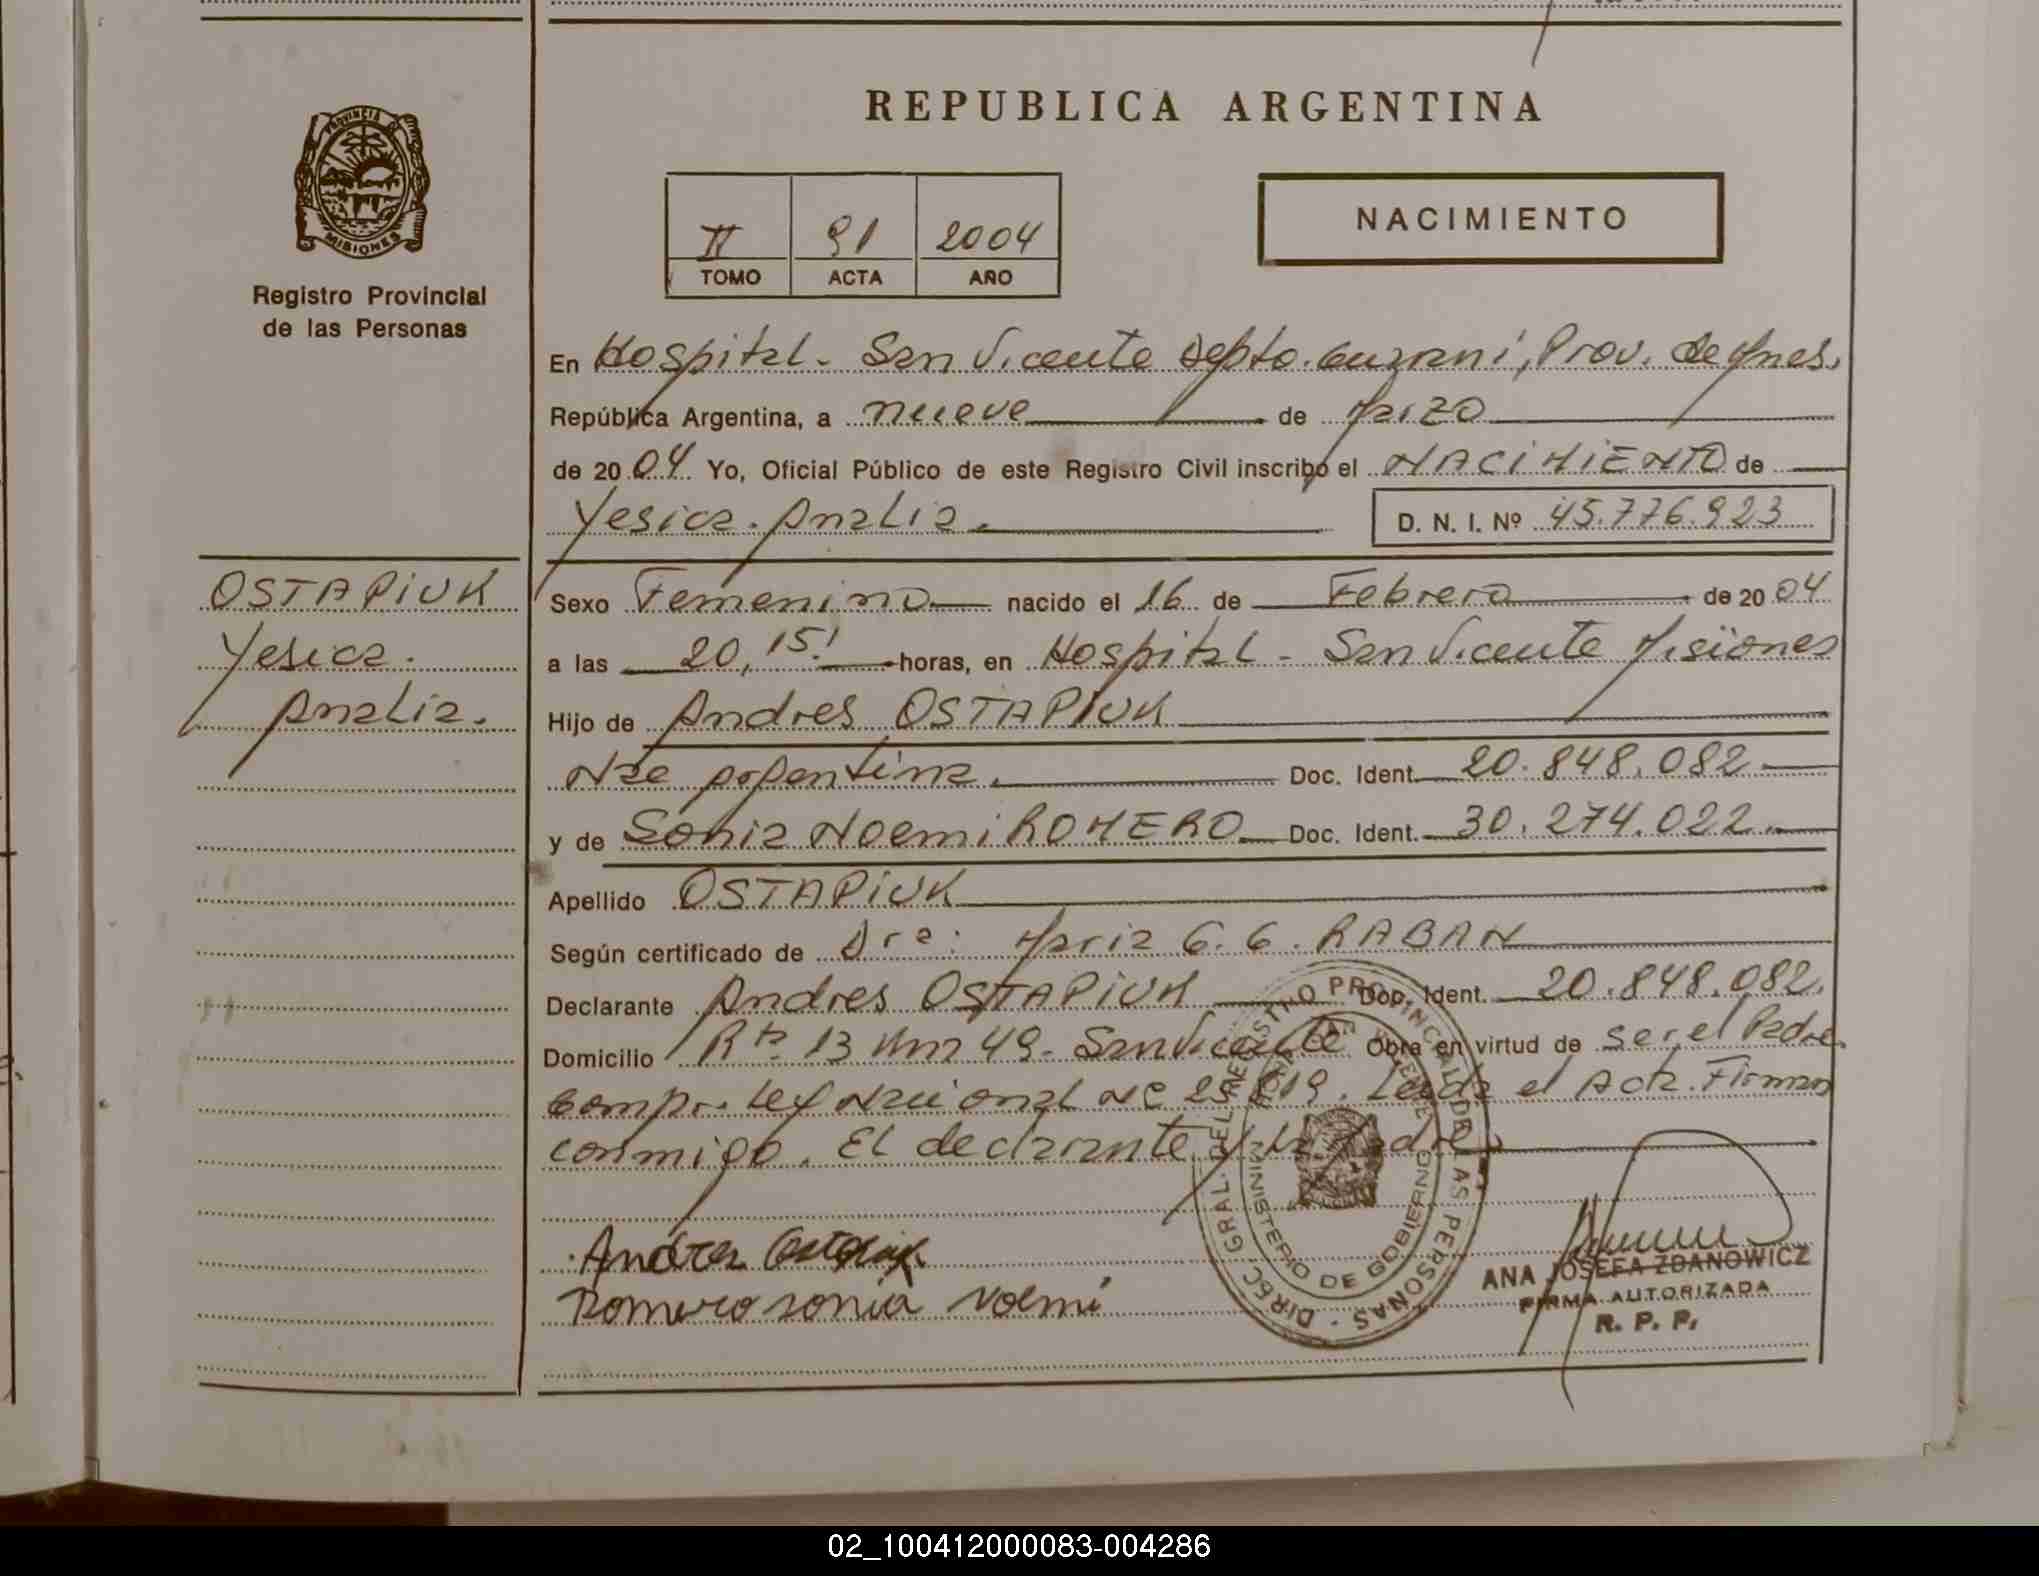 REPUBLICA ARGENTINA
PROVINCIA DE
MISIONES
Registro Provincial
de las Personas
II 91 2004
TOMO ACTA AÑO
NACIMIENTO
En Hospital - San Vicente Depto. Guarani, Prov. de Mnes.
República Argentina, a nueve de Marzo
de 2004 Yo, Oficial Público de este Registro Civil inscribo el NACIMIENTO de
Yesica Analia.
D. N. I. Nº 45.776.923
OSTAPIUK
Yesica
Analia.
Sexo Femenino nacido el 16 de Febrero de 2004
a las 20,15! horas, en Hospital - San Vicente Misiones
Hijo de Andres OSTAPIUK
Nac Argentina. Doc. Ident. 20.848.082
y de Sonia Noemi ROMERO Doc. Ident. 30.274.022.
Apellido OSTAPIUK
Según certificado de Dra: Maria G. G. RABAN
Declarante Andres OSTAPIUK Doc. Ident. 20.848.082.
Domicilio Rta 13 Km 49 - San Vicente Obra en virtud de ser el Padre
Compr. Ley Nacional Nº 25819. Leida el Acta. Firman
conmigo. El declarante y la Madre
Andres Ostapiuk
Romero sonia Noemi
DIREC. GRAL. DEL REGISTRO PROVINCIAL DE LAS PERSONAS
SAN VICENTE
MINISTERIO DE GOBIERNO
ANA JOSEFA ZDANOWICZ
FIRMA AUTORIZADA
R. P. P.
02_100412000083-004286